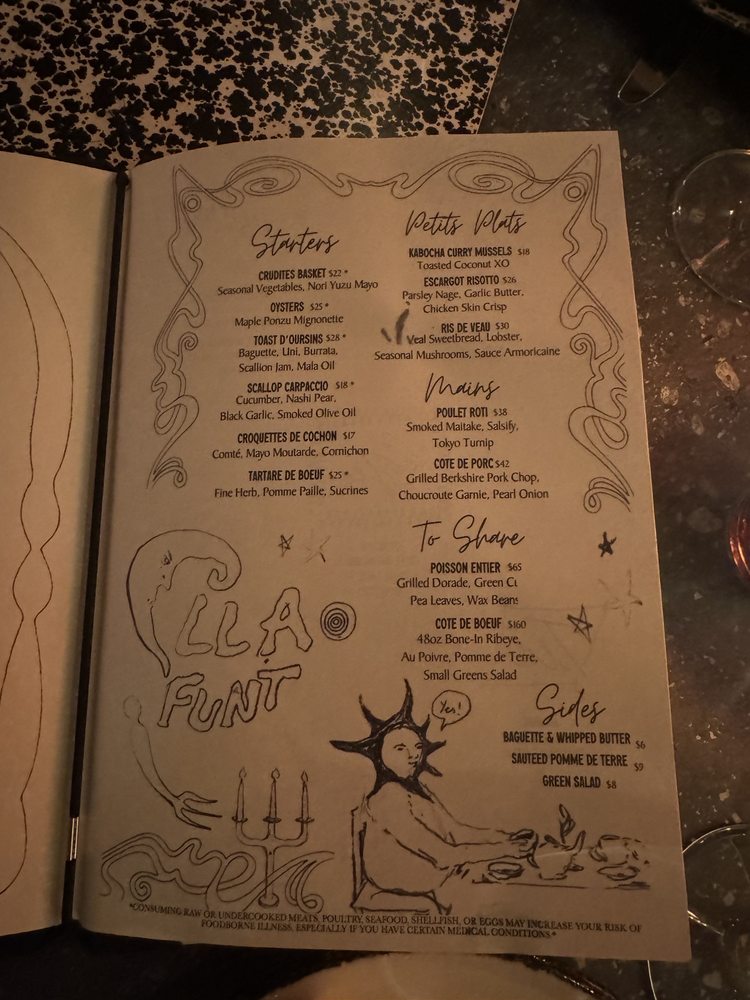 Starters
CRUDITES BASKET $22 *
Seasonal Vegetables, Nori Yuzu Mayo
OYSTERS $25 *
Maple Ponzu Mignonette
TOAST D'OURSINS $28 *
Baguette, Uni, Burrata,
Scallion Jam, Mala Oil
SCALLOP CARPACCIO $18 *
Cucumber, Nashi Pear,
Black Garlic, Smoked Olive Oil
CROQUETTES DE COCHON $17
Comté, Mayo Moutarde, Cornichon
TARTARE DE BOEUF $25 *
Fine Herb, Pomme Paille, Sucrines
Petits Plats
KABOCHA CURRY MUSSELS $18
Toasted Coconut XO
ESCARGOT RISOTTO $26
Parsley Nage, Garlic Butter,
Chicken Skin Crisp
RIS DE VEAU $30
Veal Sweetbread, Lobster,
Seasonal Mushrooms, Sauce Armoricaine
Mains
POULET ROTI $38
Smoked Maitake, Salsify,
Tokyo Turnip
COTE DE PORC $42
Grilled Berkshire Pork Chop,
Choucroute Garnie, Pearl Onion
To Share
POISSON ENTIER $65
Grilled Dorade, Green
Pea Leaves, Wax Beans
COTE DE BOEUF $160
48oz Bone-In Ribeye,
Au Poivre, Pomme de Terre,
Small Greens Salad
Sides
BAGUETTE & WHIPPED BUTTER $6
SAUTEED POMME DE TERRE $9
GREEN SALAD $8
FUNT
Yes!
*CONSUMING RAW OR UNDERCOOKED MEATS, POULTRY, SEAFOOD, SHELLFISH, OR EGGS MAY INCREASE YOUR RISK OF
FOODBORNE ILLNESS, ESPECIALLY IF YOU HAVE CERTAIN MEDICAL CONDITIONS*